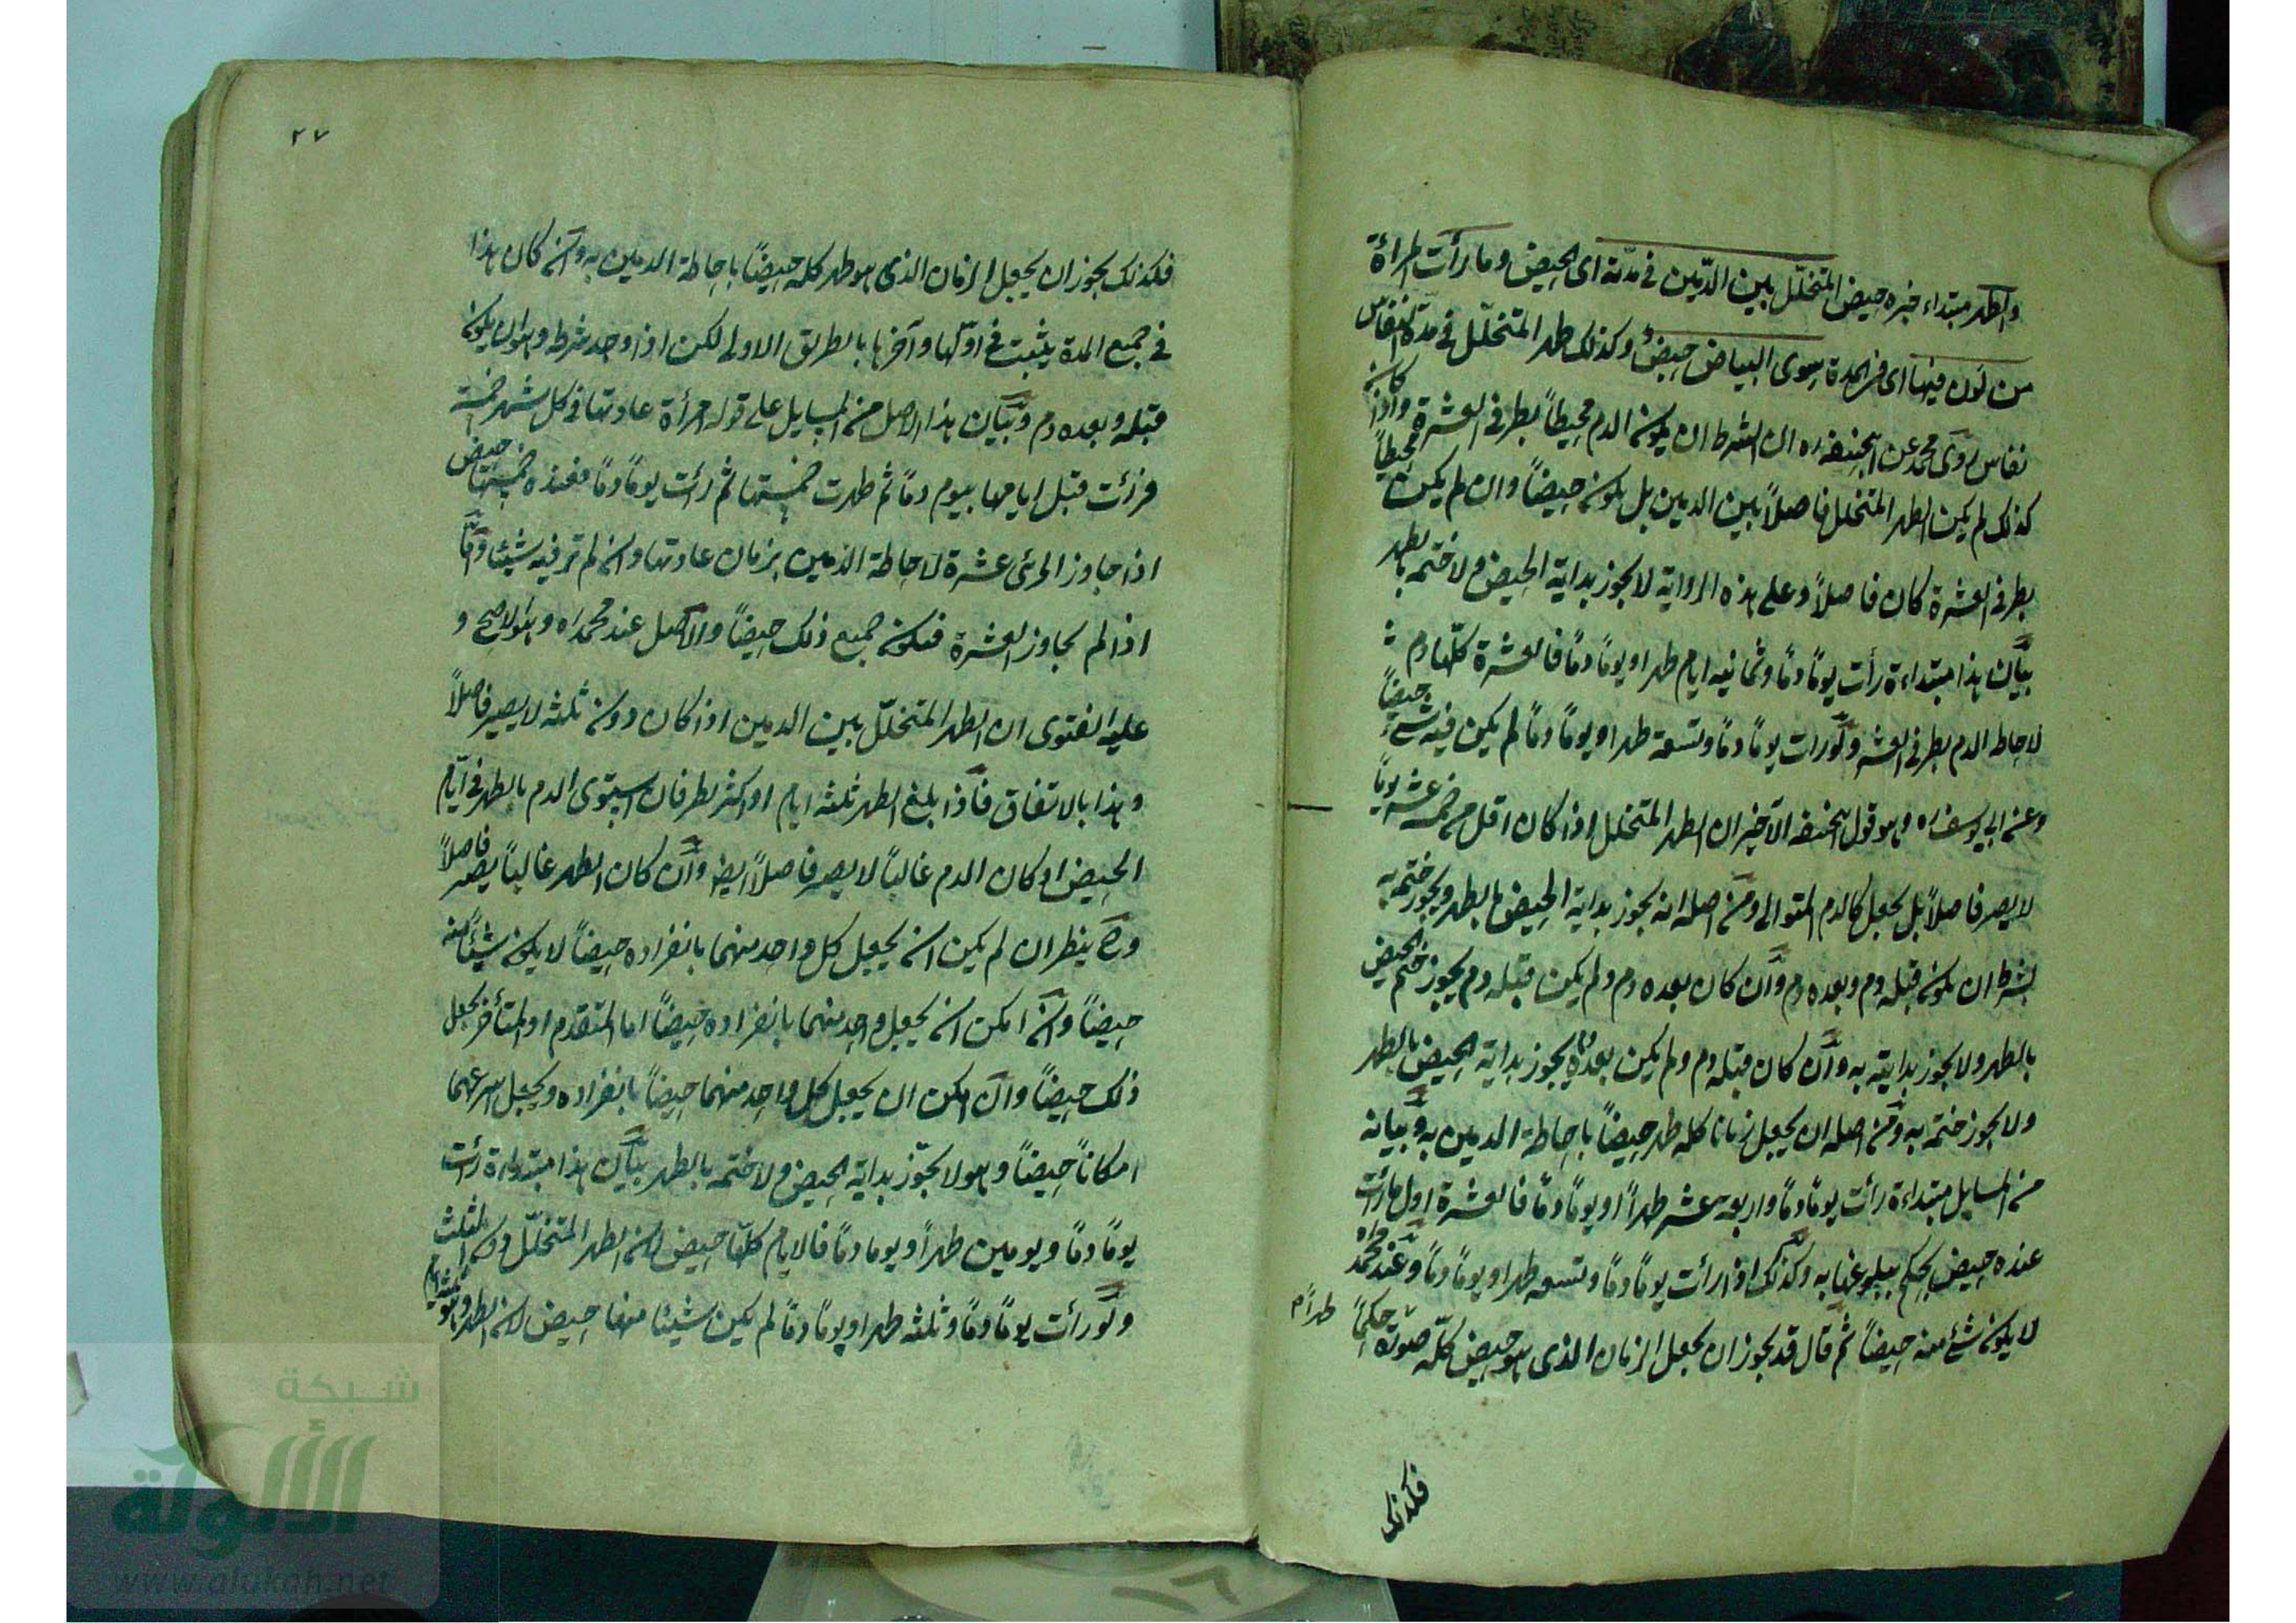 والطهر مبتداء خبره حيض المتخلل بين الدمين في مدته اى الحيض وما رأت المرأة
من لون فيها اى في المدة سوى البياض حيض وكذلك طهر المتخلل في مدة النفاس
نفاس روى محمد عن ابيحنيفه ره ان الشرط ان يكون الدم محيطاً بطرفى العشرة واذا كان
كذلك لم يكن الطهر المتخلل فاصلاً بين الدمين بل يكون حيضاً وان لم يكن محيطاً
بطرفى العشرة كان فاصلاً وعلى هذه الرواية لا يجوز بداية الحيض ولا ختمه بالطهر
بيان هذا مبتداءة رأت يوماً دماً وثمانيه ايام طهرا ويوماً دماً فالعشرة كلها دم
لاحاطه الدم بطرفى العشره ولو رات يوماً دماً وتسعة طهرا ويوماً دماً لم يكن فيه شئ حيضاً
وعن ابي يوسف ره وهو قول ابيحنيفه الآخر ان الطهر المتخلل اذا كان اقل من خمسه عشر يوماً
لا يصر فاصلاً بل يجعل كالدم المتوالى ومن اصله انه يجوز بداية الحيض بالطهر ويجوز ختمه به
بشرط ان يكون قبله دم وبعده دم وان كان بعده دم ولم يكن قبله دم يجوز ختم الحيض
بالطهر ولا يجوز بدايته به وان كان قبله دم ولم يكن بعده دم يجوز بداية الحيض بالطهر
ولا يجوز ختمه به ومن اصله ان يجعل زمانا كله طهر حيضاً باحاطة الدمين به وبيانه
من المسايل مبتداءة رأت يوماً دماً واربعة عشر طهراً ويوماً دماً فالعشرة اول ما رأت
عنده حيض يحكم ببلوغها به وكذلك اذا رأت يوماً دماً وتسعه طهرا ويوماً دماً وعند محمد ره
لا يكون شئ منه حيضاً ثم قال قد يجوز ان يجعل الزمان الذى هو حيض كله صورة حكماً طهراً
فكذلك
٢٧
فكذلك يجوز ان يجعل الزمان الذى هو طهر كله حيضاً باحاطة الدمين به وان كان هذا
في جميع المدة يثبت في اولها وآخرها بالطريق الاولى لكن اذا وجد شرطه وهو ان يكون
قبله وبعده دم وبيان هذا الاصل من المسايل على قوله امرأة عادتها في كل شهر خمسة
فرأت قبل ايامها بيوم دماً ثم طهرت خمستها ثم رأت يوماً دماً فعنده خمستها حيض
اذا جاوز المرئى عشرة لاحاطة الدمين بزمان عادتها وان لم تر فيه شيئا واما
اذا لم يجاوز العشرة فيكون جميع ذلك حيضاً والاصل عند محمد ره وهو الاصح و
عليه الفتوى ان الطهر المتخلل بين الدمين اذا كان دون ثلثه لا يصير فاصلاً
وهذا بالاتفاق فاذا بلغ الطهر ثلثه ايام او اكثر نظر فان استوى الدم بالطهر في ايام
الحيض او كان الدم غالباً لا يصر فاصلاً ايضا وان كان الطهر غالباً يصر فاصلاً
وح ينظر ان لم يكن ان يجعل كل واحد منهما بانفراده حيضاً لا يكون شيئاً منه
حيضاً وان امكن ان يجعل واحد منهما بانفراده حيضاً اما المتقدم او المتأخر يجعل
ذلك حيضاً وان امكن ان يجعل كل واحد منهما حيضاً بانفراده ويجعل اسرعهما
امكاناً حيضاً وهو لا يجوز بداية الحيض ولا ختمه بالطهر بيان هذا مبتداءة رأت
يوماً دماً ويومين طهراً ويوما دماً فالايام كلها حيض لان الطهر المتخلل دون الثلث
ولو رأت يوماً دماً وثلثه طهرا ويوماً دماً لم يكن شيئا منها حيض لان الطهر وهو ثلثة ايام
شبكة
الألوكة
www.alukah.net